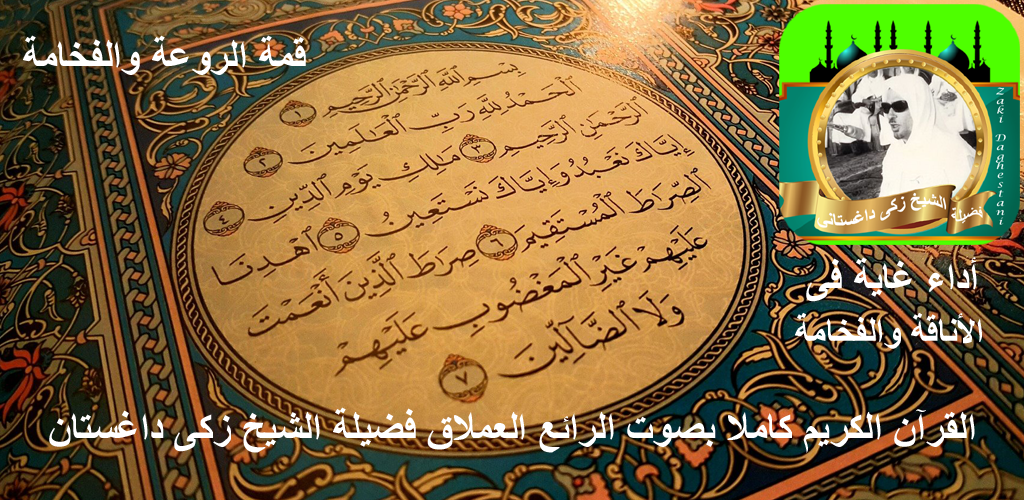 قمة الروعة والفخامة
بِسْمِ ٱللَّهِ ٱلرَّحْمَٰنِ ٱلرَّحِيمِ ١
ٱلْحَمْدُ لِلَّهِ رَبِّ ٱلْعَٰلَمِينَ ٢
ٱلرَّحْمَٰنِ ٱلرَّحِيمِ ٣ مَٰلِكِ يَوْمِ ٱلدِّينِ ٤
إِيَّاكَ نَعْبُدُ وَإِيَّاكَ نَسْتَعِينُ ٥ ٱهْدِنَا
ٱلصِّرَٰطَ ٱلْمُسْتَقِيمَ ٦ صِرَٰطَ ٱلَّذِينَ أَنْعَمْتَ
عَلَيْهِمْ غَيْرِ ٱلْمَغْضُوبِ عَلَيْهِمْ
وَلَا ٱلضَّآلِّينَ ٧
Zaki Daghestani
فضيلة الشيخ زكى داغستانى
أداء غاية فى
الأناقة والفخامة
القرآن الكريم كاملا بصوت الرائع العملاق فضيلة الشيخ زكى داغستان